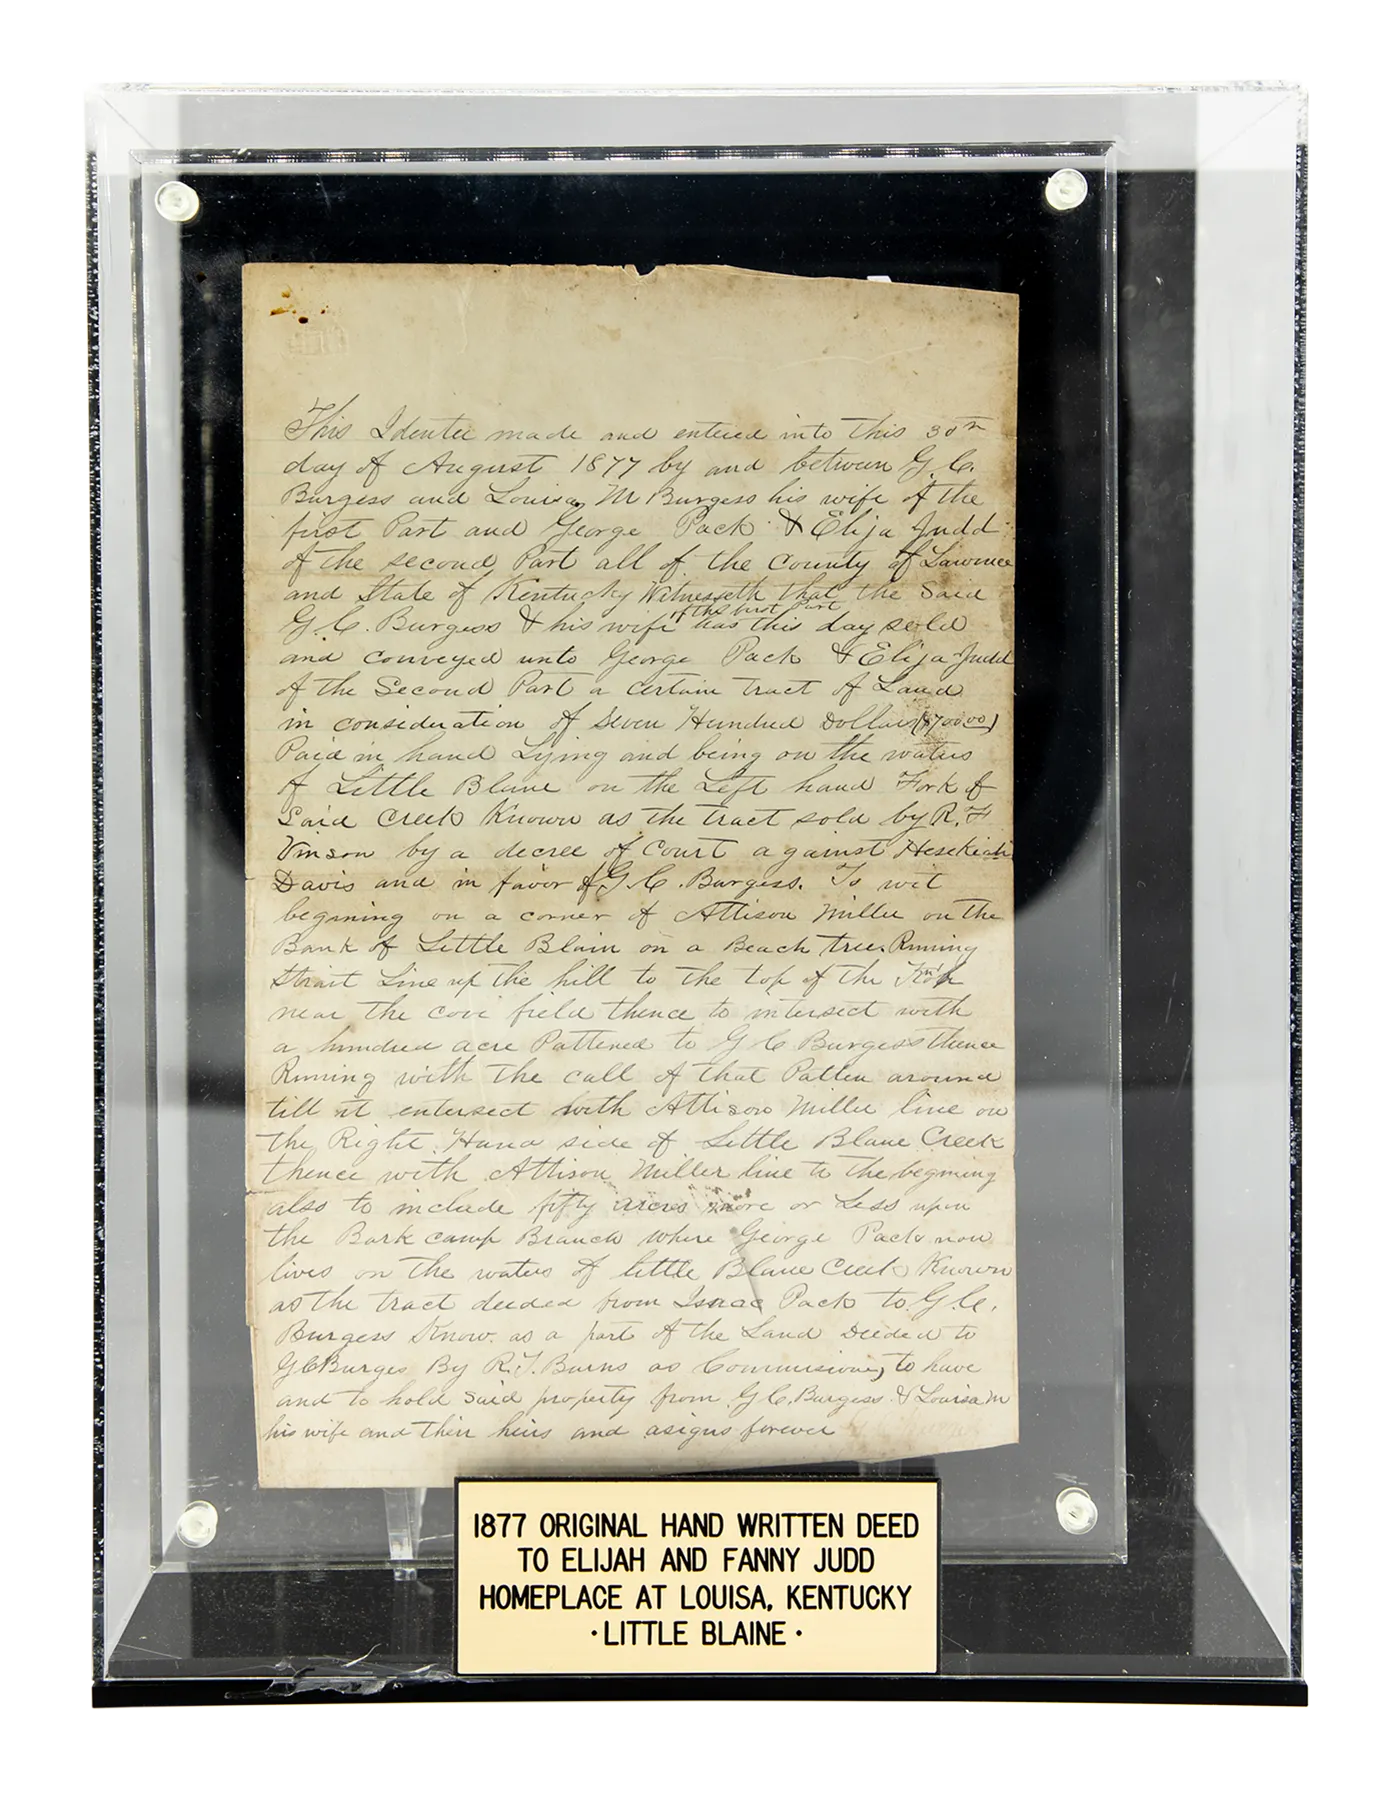 This Identee made and entered into this 30th
day of August 1877 by and between G. C.
Burgess and Louisa M Burgess his wife of the
first Part and George Pack & Elija Judd
of the second Part all of the County of Lawrence
and State of Kentucky Witnesseth that the Said
of the first Part
G. C. Burgess & his wife has this day sold
and conveyed unto George Pack & Elija Judd
of the Second Part a certain tract of Land
in consideration of Seven Hundred Dollars ($700.00)
Paid in hand Lying and being on the waters
of Little Blaine on the Left hand Fork of
Said Creek Known as the tract sold by R. F
Vinson by a decree of Court against Hesekiah
Davis and in favor of G. C. Burgess. To wit
begining on a corner of Attison Miller on the
Bank of Little Blain on a Beach tree Runing
Strait Line up the hill to the top of the
near the cove field thence to intersect with
a hundred acre Pattened to G C Burgess thence
Runing with the call of that Patten around
till it entersect with Attison Miller line on
the Right Hand side of Little Blane Creek
thence with Attison Miller line to the begining
also to include fifty acres more or Less upon
the Bark camp Branch where George Pack now
lives on the waters of little Blane Creek Known
as the tract deeded from Isaac Pack to G C.
Burgess Know. as a part of the Land Deeded to
G C Burges By R. T. Burns as Commissioner, to have
and to hold said property from G C. Burgess & Louisa M
his wife and their heirs and asigns forever
1877 ORIGINAL HAND WRITTEN DEED
TO ELIJAH AND FANNY JUDD
HOMEPLACE AT LOUISA, KENTUCKY
· LITTLE BLAINE ·